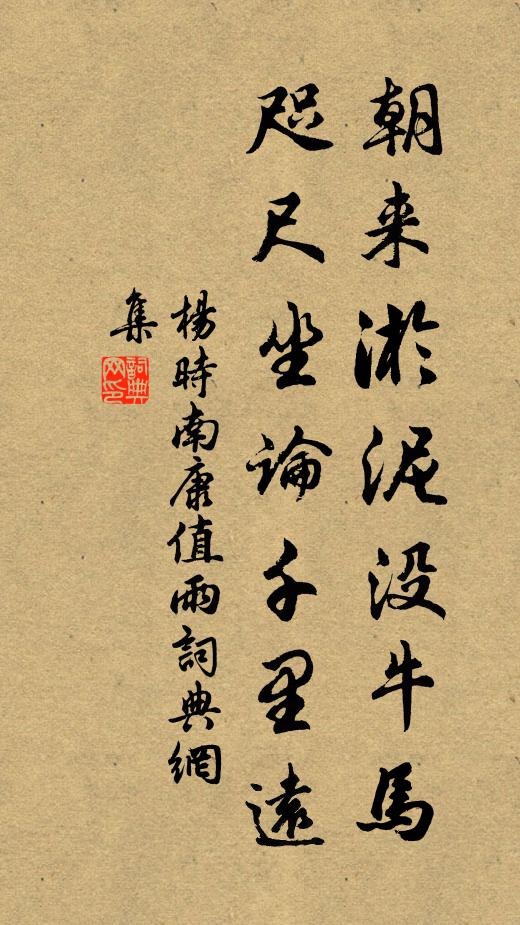 朝来淤泥没牛馬
咫尺坐論千里遠
楊時南康值雨詞典網
集
詞典
网印